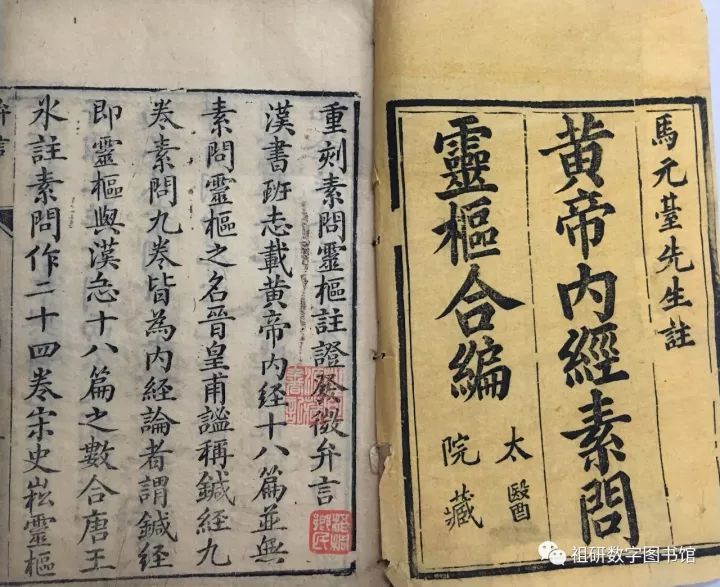 馬元臺先生註
黄帝内經素問
靈樞合編
太醫
院藏
重刻素問靈樞註證發微弁言
漢書班志載黄帝内經十八篇並無
素問靈樞之名晉皇甫謐稱鍼經九
卷素問九卷皆為内經論者謂鍼經
即靈樞與漢志十八篇之數合唐王
氷註素問作二十四卷宋史崧靈樞
弁言
祖研数字图书馆